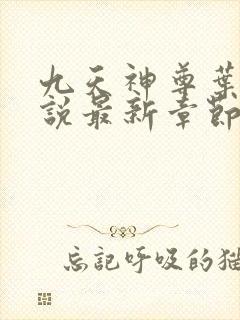 九天神尊葉
說最新章節
忘記呼吸的猫